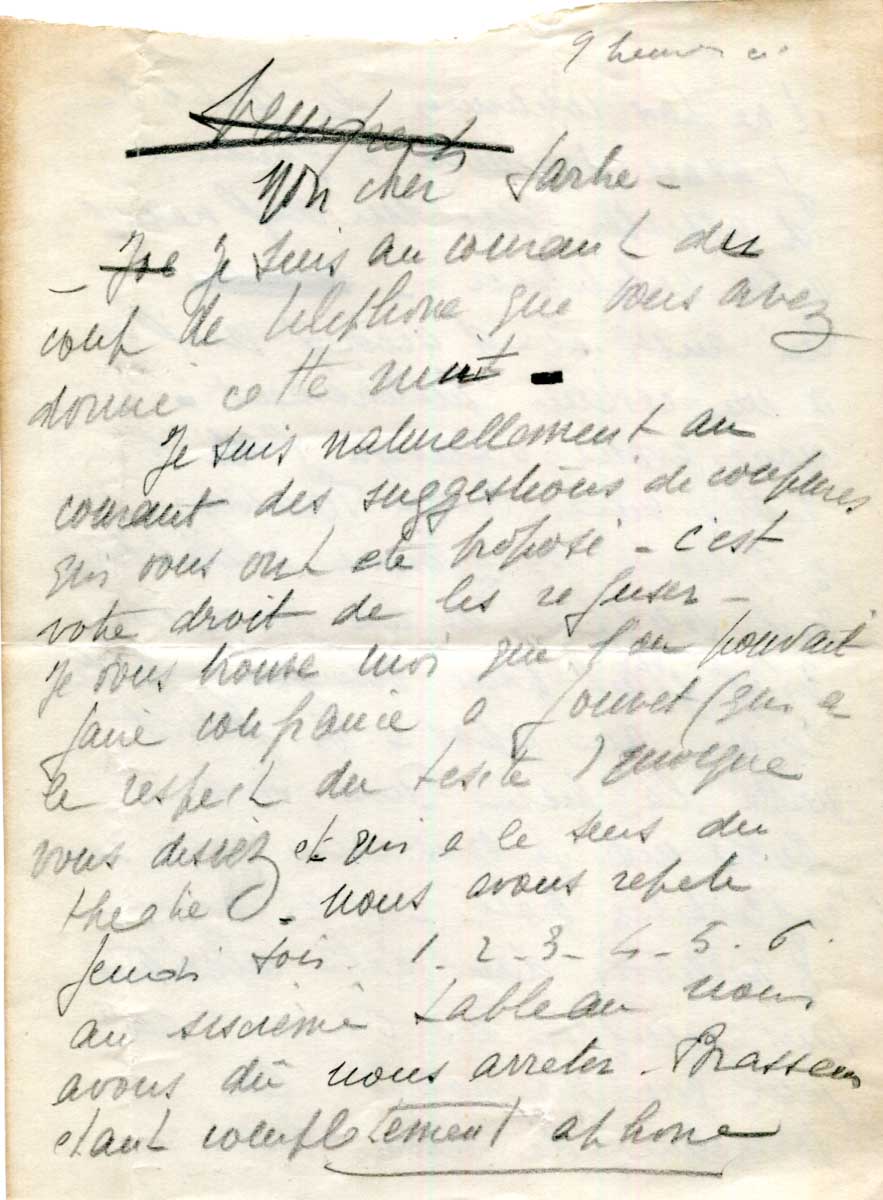 9 heures
Mon cher Sartre -
- Je suis au courant du
coup de telephone que vous avez
donné cette nuit -
Je suis naturellement au
courant des suggestions de coupures
qui vous ont ete proposé - c'est
votre droit de les refuser -
Je vous trouve moi que l'on pouvait
faire confiance a Jouvet (qui a
le respect du texte) quoique
vous disiez et qui a le sens du
theatre - nous avons repeté
jeudi soir 1 - 2 - 3 - 4 - 5 - 6 .
au sixième tableau nous
avons dû nous arreter - Brasseur
etant completement aphone